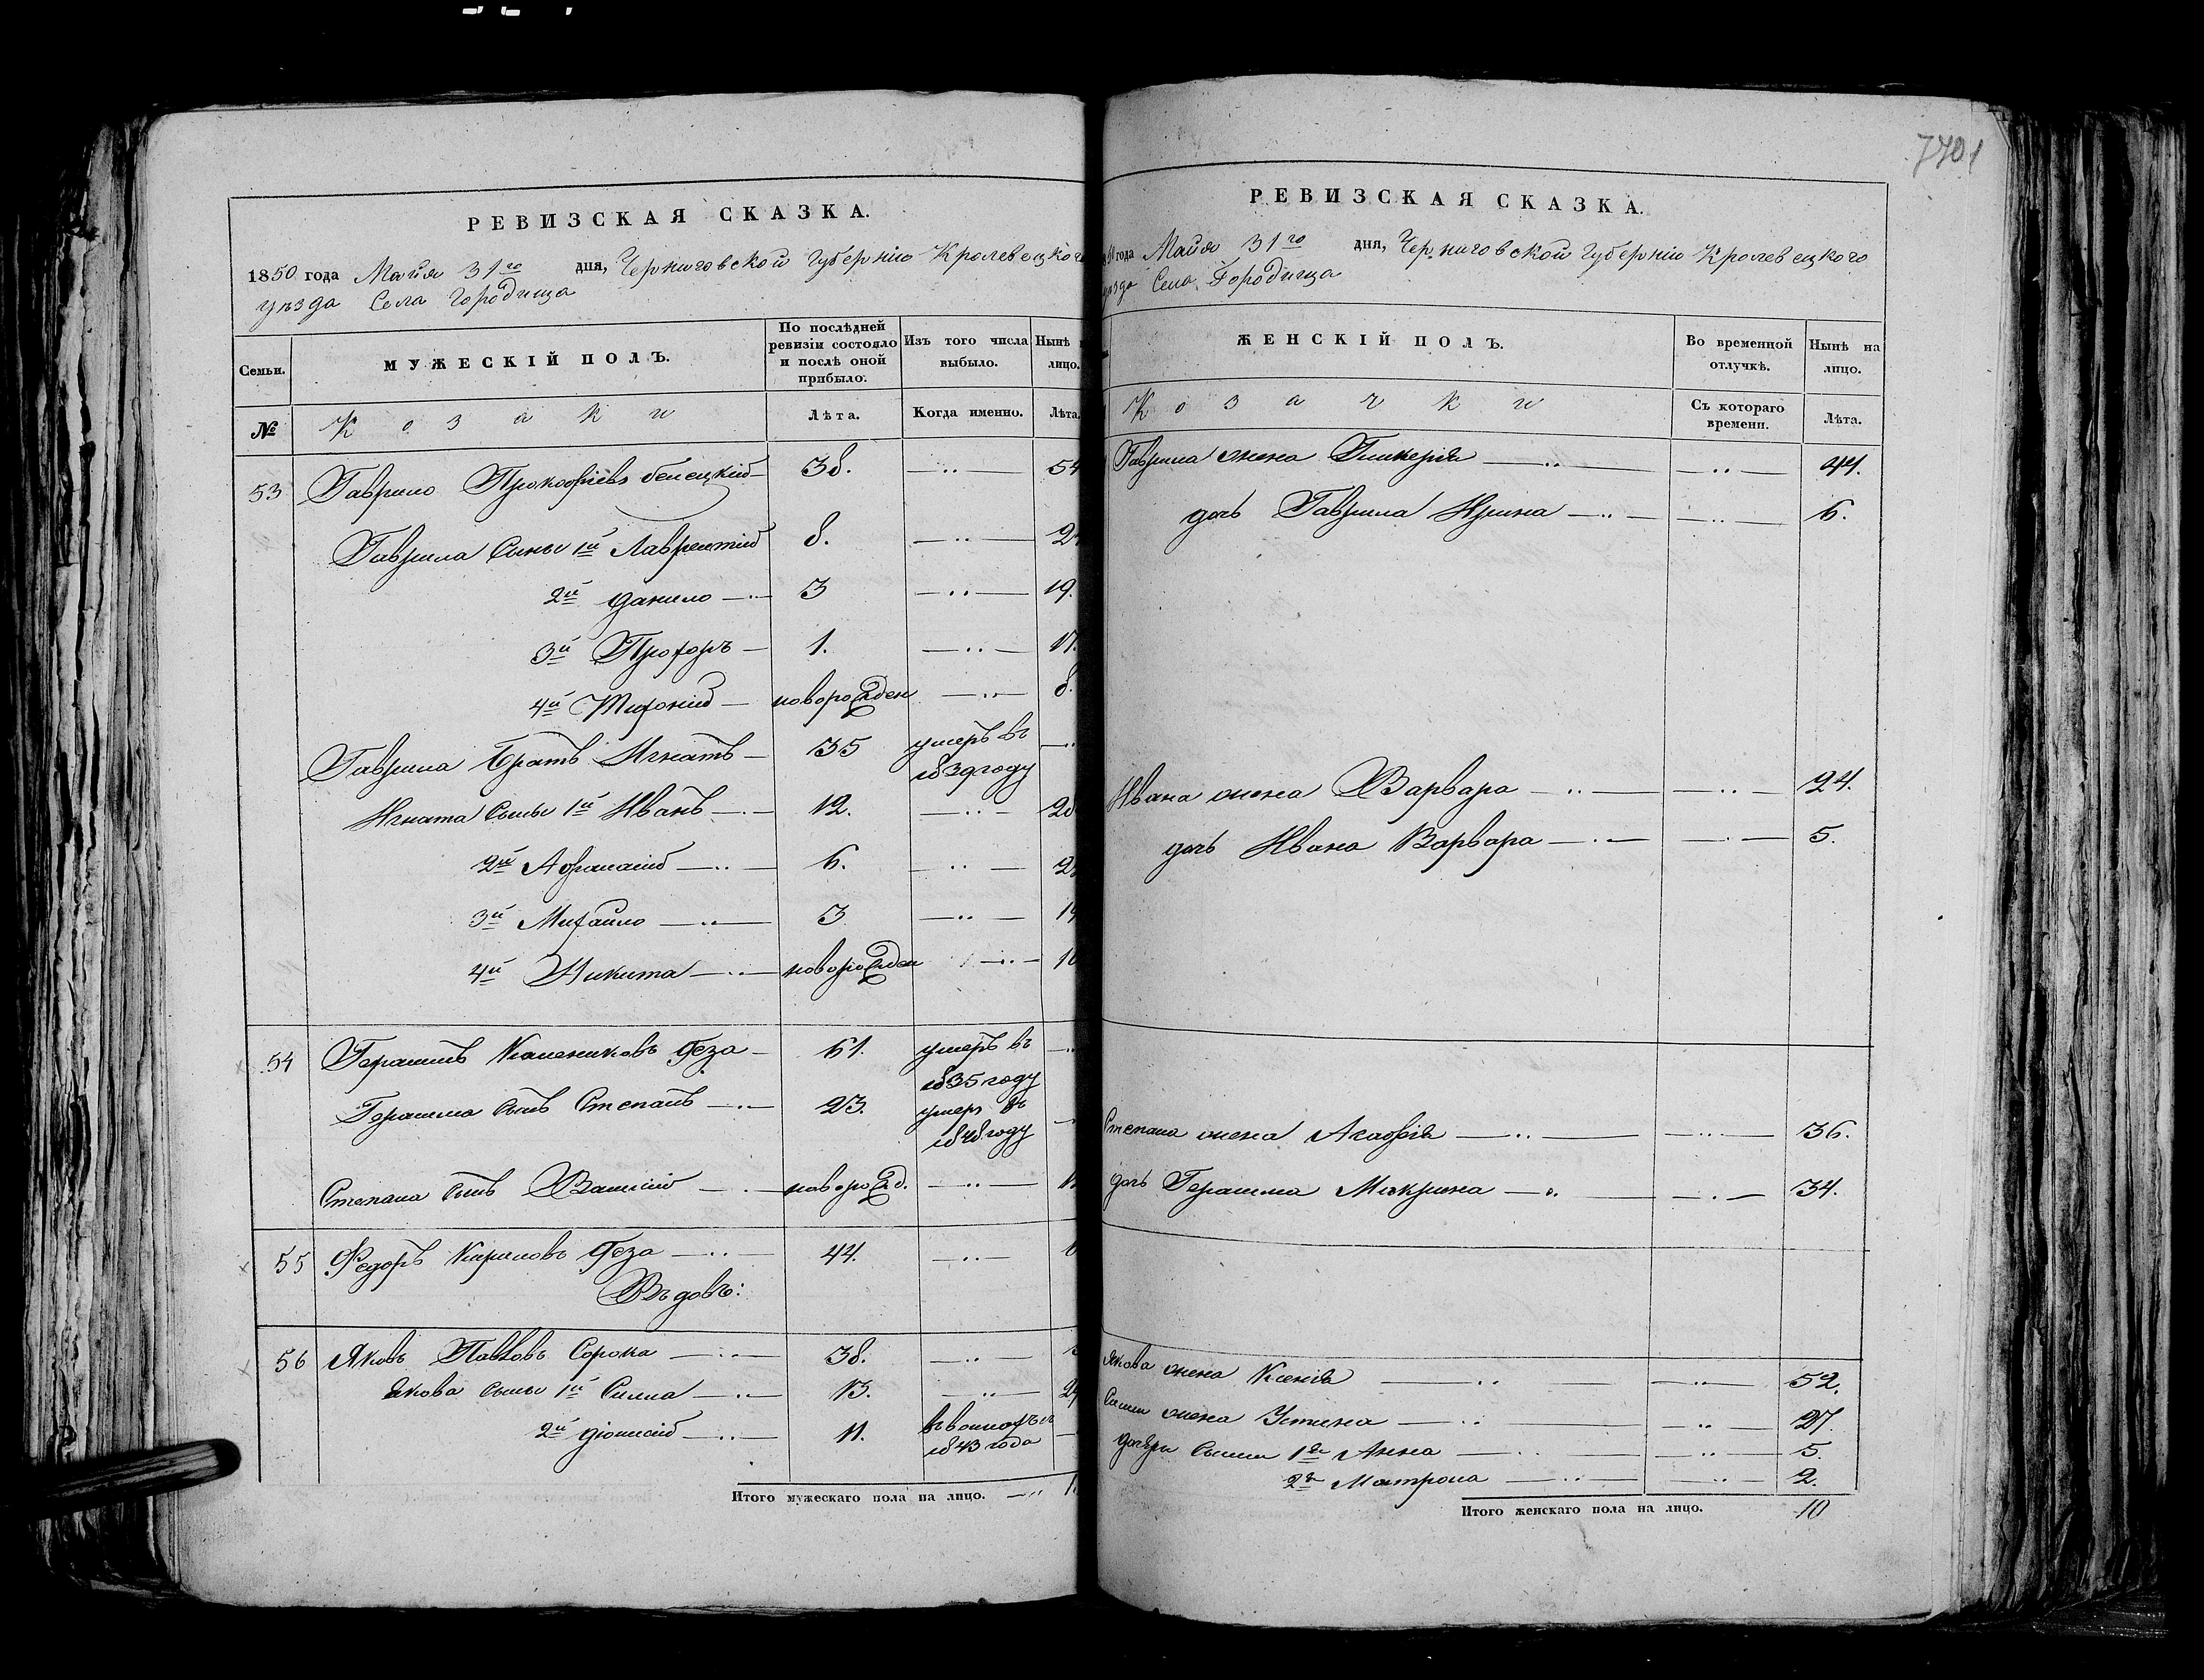 7701
РЕВИЗСКАЯ СКАЗКА.
1850 года Майя 31го дня, Черниговской губернію Кролевецкого
уѣзда Села Городища
Семьи.
МУЖЕСКІЙ ПОЛЪ.
По послѣдней ревизіи состояло и послѣ оной прибыло.
Изъ того числа выбыло.
Нынѣ
лицо.
№
Козаки
Лѣта.
Когда именно.
Лѣта.
53 Гаврило Прокофіевъ 38. 54
Гаврила Сыны 1й Лаврентій 8. 24
2й Данило 3 19.
3й Прохоръ 1. 17.
4й новорожден 8.
Гаврила Братъ Игнатъ 35 умеръ въ
1839 году
Игната Сыны 1й Иванъ 12. 28
2й Афанасій 6. 22
3й Михайло 3 19
4й Никита новорожден 10
54 Герасимъ Геза 61. умеръ въ
1835 году
Герасима Сынъ Степанъ 23. умеръ въ
1848 году
Степана Сынъ Василій новорожд.
55 Федоръ Кириловъ Геза 44.
Вдовъ:
56 Яковъ Павловъ Сорока 38.
Якова Сыны 1й Силла 13. 29
2й Діонисій 11.
1843 года
Итого мужескаго пола на лицо.
РЕВИЗСКАЯ СКАЗКА.
года Майя 31го дня, Черниговской губернію Кролевецкого
Села Городища
ЖЕНСКІЙ ПОЛЪ.
Во временной отлучкѣ.
Нынѣ на лицо.
Козачки
Съ котораго времени.
Лѣта.
Гаврила жена Гликерія 44.
дочь Гаврила Ирина 6.
Ивана жена Варвара 24.
дочь Ивана Варвара 5.
Степана жена Агафія 36.
дочь Герасима Макрина 34.
Якова жена Ксенія 52.
Силли жена Устина 27.
дочери Силли 1я Анна 5.
2я Матрона 2.
Итого женскаго пола на лицо. 10